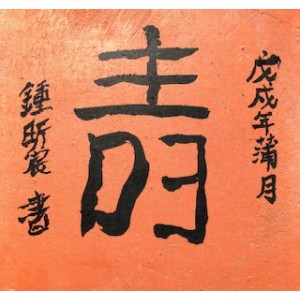 戊戌年蒲月
青
鍾昕宸 書